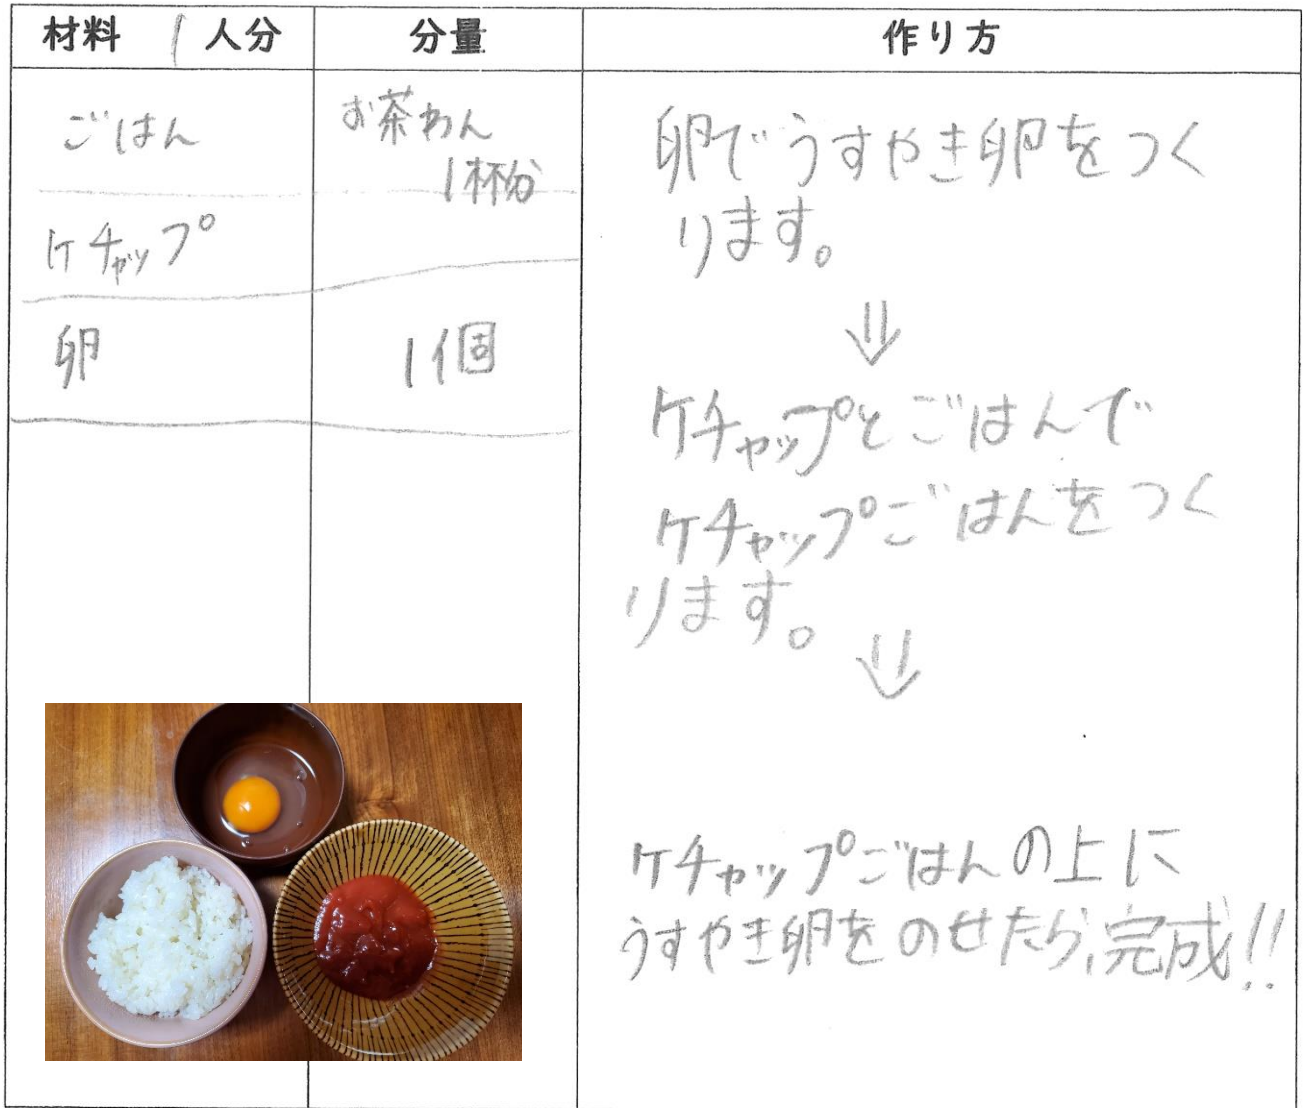 材料 1人分
分量
作り方
ごはん
お茶わん
1杯分
ケチャップ
卵
1個
卵でうすやき卵をつく
ります。
⇓
ケチャップとごはんで
ケチャップごはんをつく
ります。
⇓
ケチャップごはんの上に
うすやき卵をのせたら、完成!!